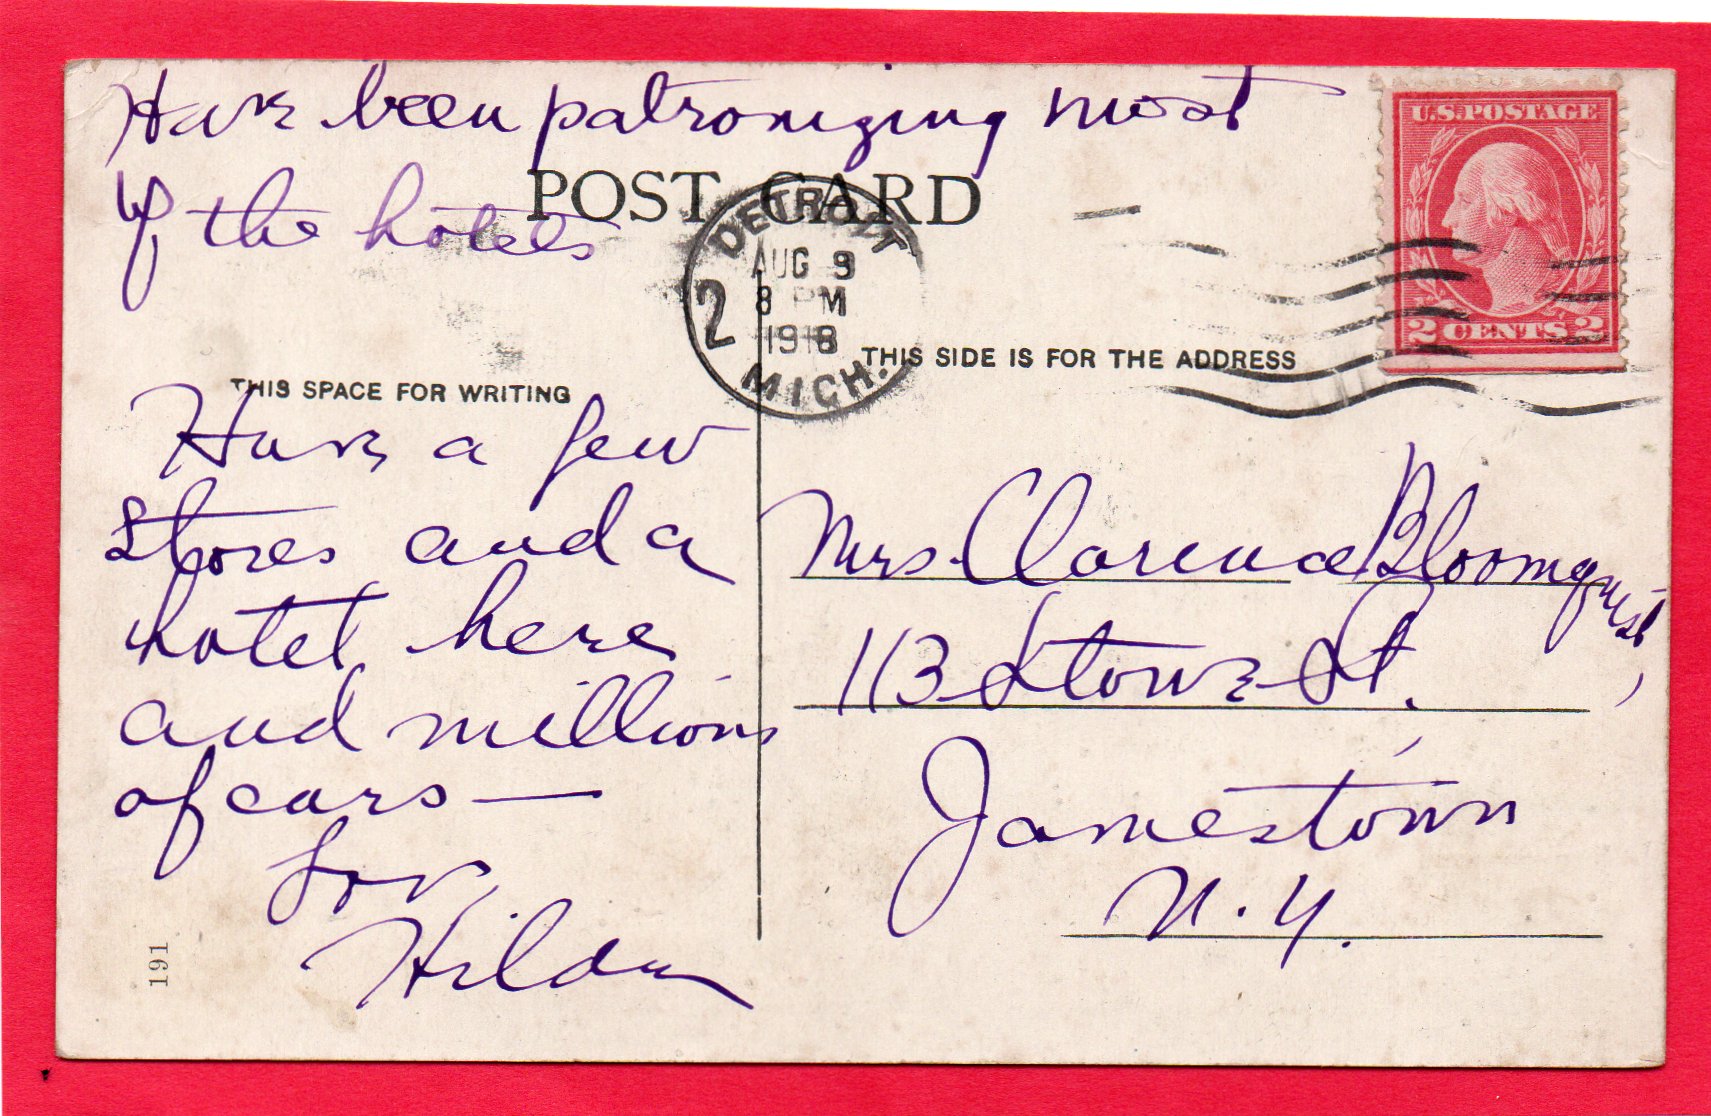 Have been patronizing most
of the hotels
POST CARD
DETROIT
AUG 9
8 PM
1918
MICH.
2
U.S. POSTAGE
2 CENTS 2
THIS SPACE FOR WRITING
THIS SIDE IS FOR THE ADDRESS
Have a few
stores and a
hotel here
and millions
of cars —
Love,
Hilda
Mrs. Clarence Bloomquist,
113 Stowe St.
Jamestown
N. Y.
191